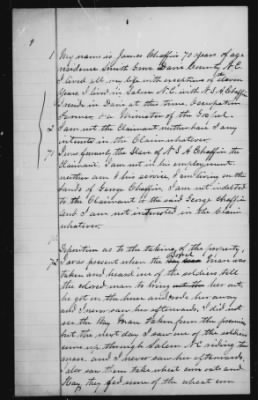 1 My name is James Chaffin 70 years of age
residence South Davie County N.C.
I lived all my life with exception of eleven
years I lived in Salem N.C. with N. S. A. Chaffin
I reside in Davie at this time, Occupation
Farmer, or a Minister of the Gospel.
2 I am not the Claimant neither have I any
interest in the Claim whatever.
71 I am Servant, the Slave of N. S. A. Chaffin the
Claimant. I am not in his employment
neither am I his service, I am living on the
lands of George Chaffin, I am not indebted
to the Claimant or the said George Chaffin
and I am not interested in the Claim
whatever.
Deposition as to the taking of the property,
72 I was present when the Sorrel Mare was
taken and heard one of the soldiers tell
the colored man to bring her out,
he got on the horse and rode her away
and I never saw her afterwards, I did not
see the Bay Mare taken from the premises
but the next day I saw one of the soldiers
come up through Salem N.C. riding the
mare and I never saw her afterwards,
I also saw them take wheat corn oats and
Hay, they fed some of the wheat corn